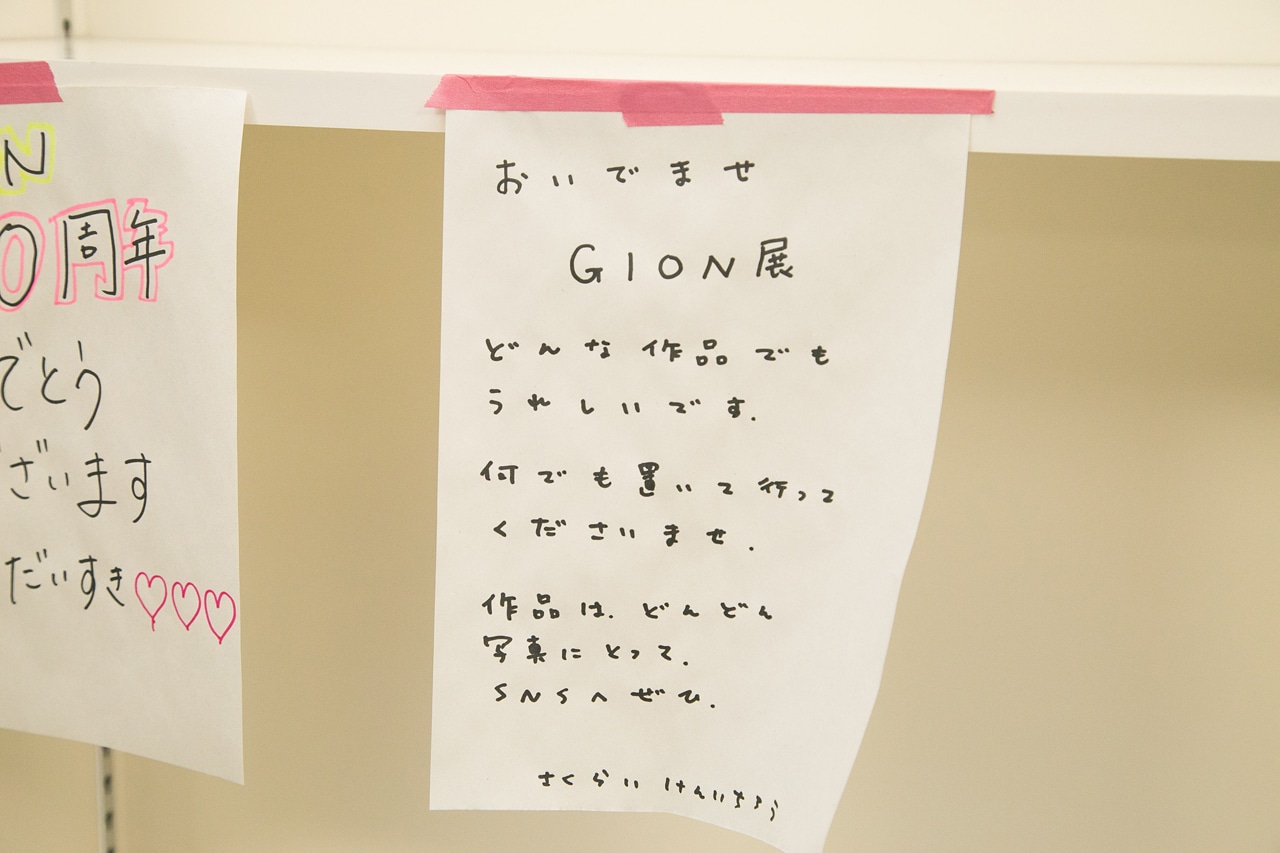 N
0周年
でとう
ざいます
だいすき♡♡♡
おいでませ
GION展
どんな作品でも
うれしいです.
何でも置いて行って
くださいませ.
作品は.どんどん
写真にとって.
SNSへぜひ.
さくらいけんいちろう